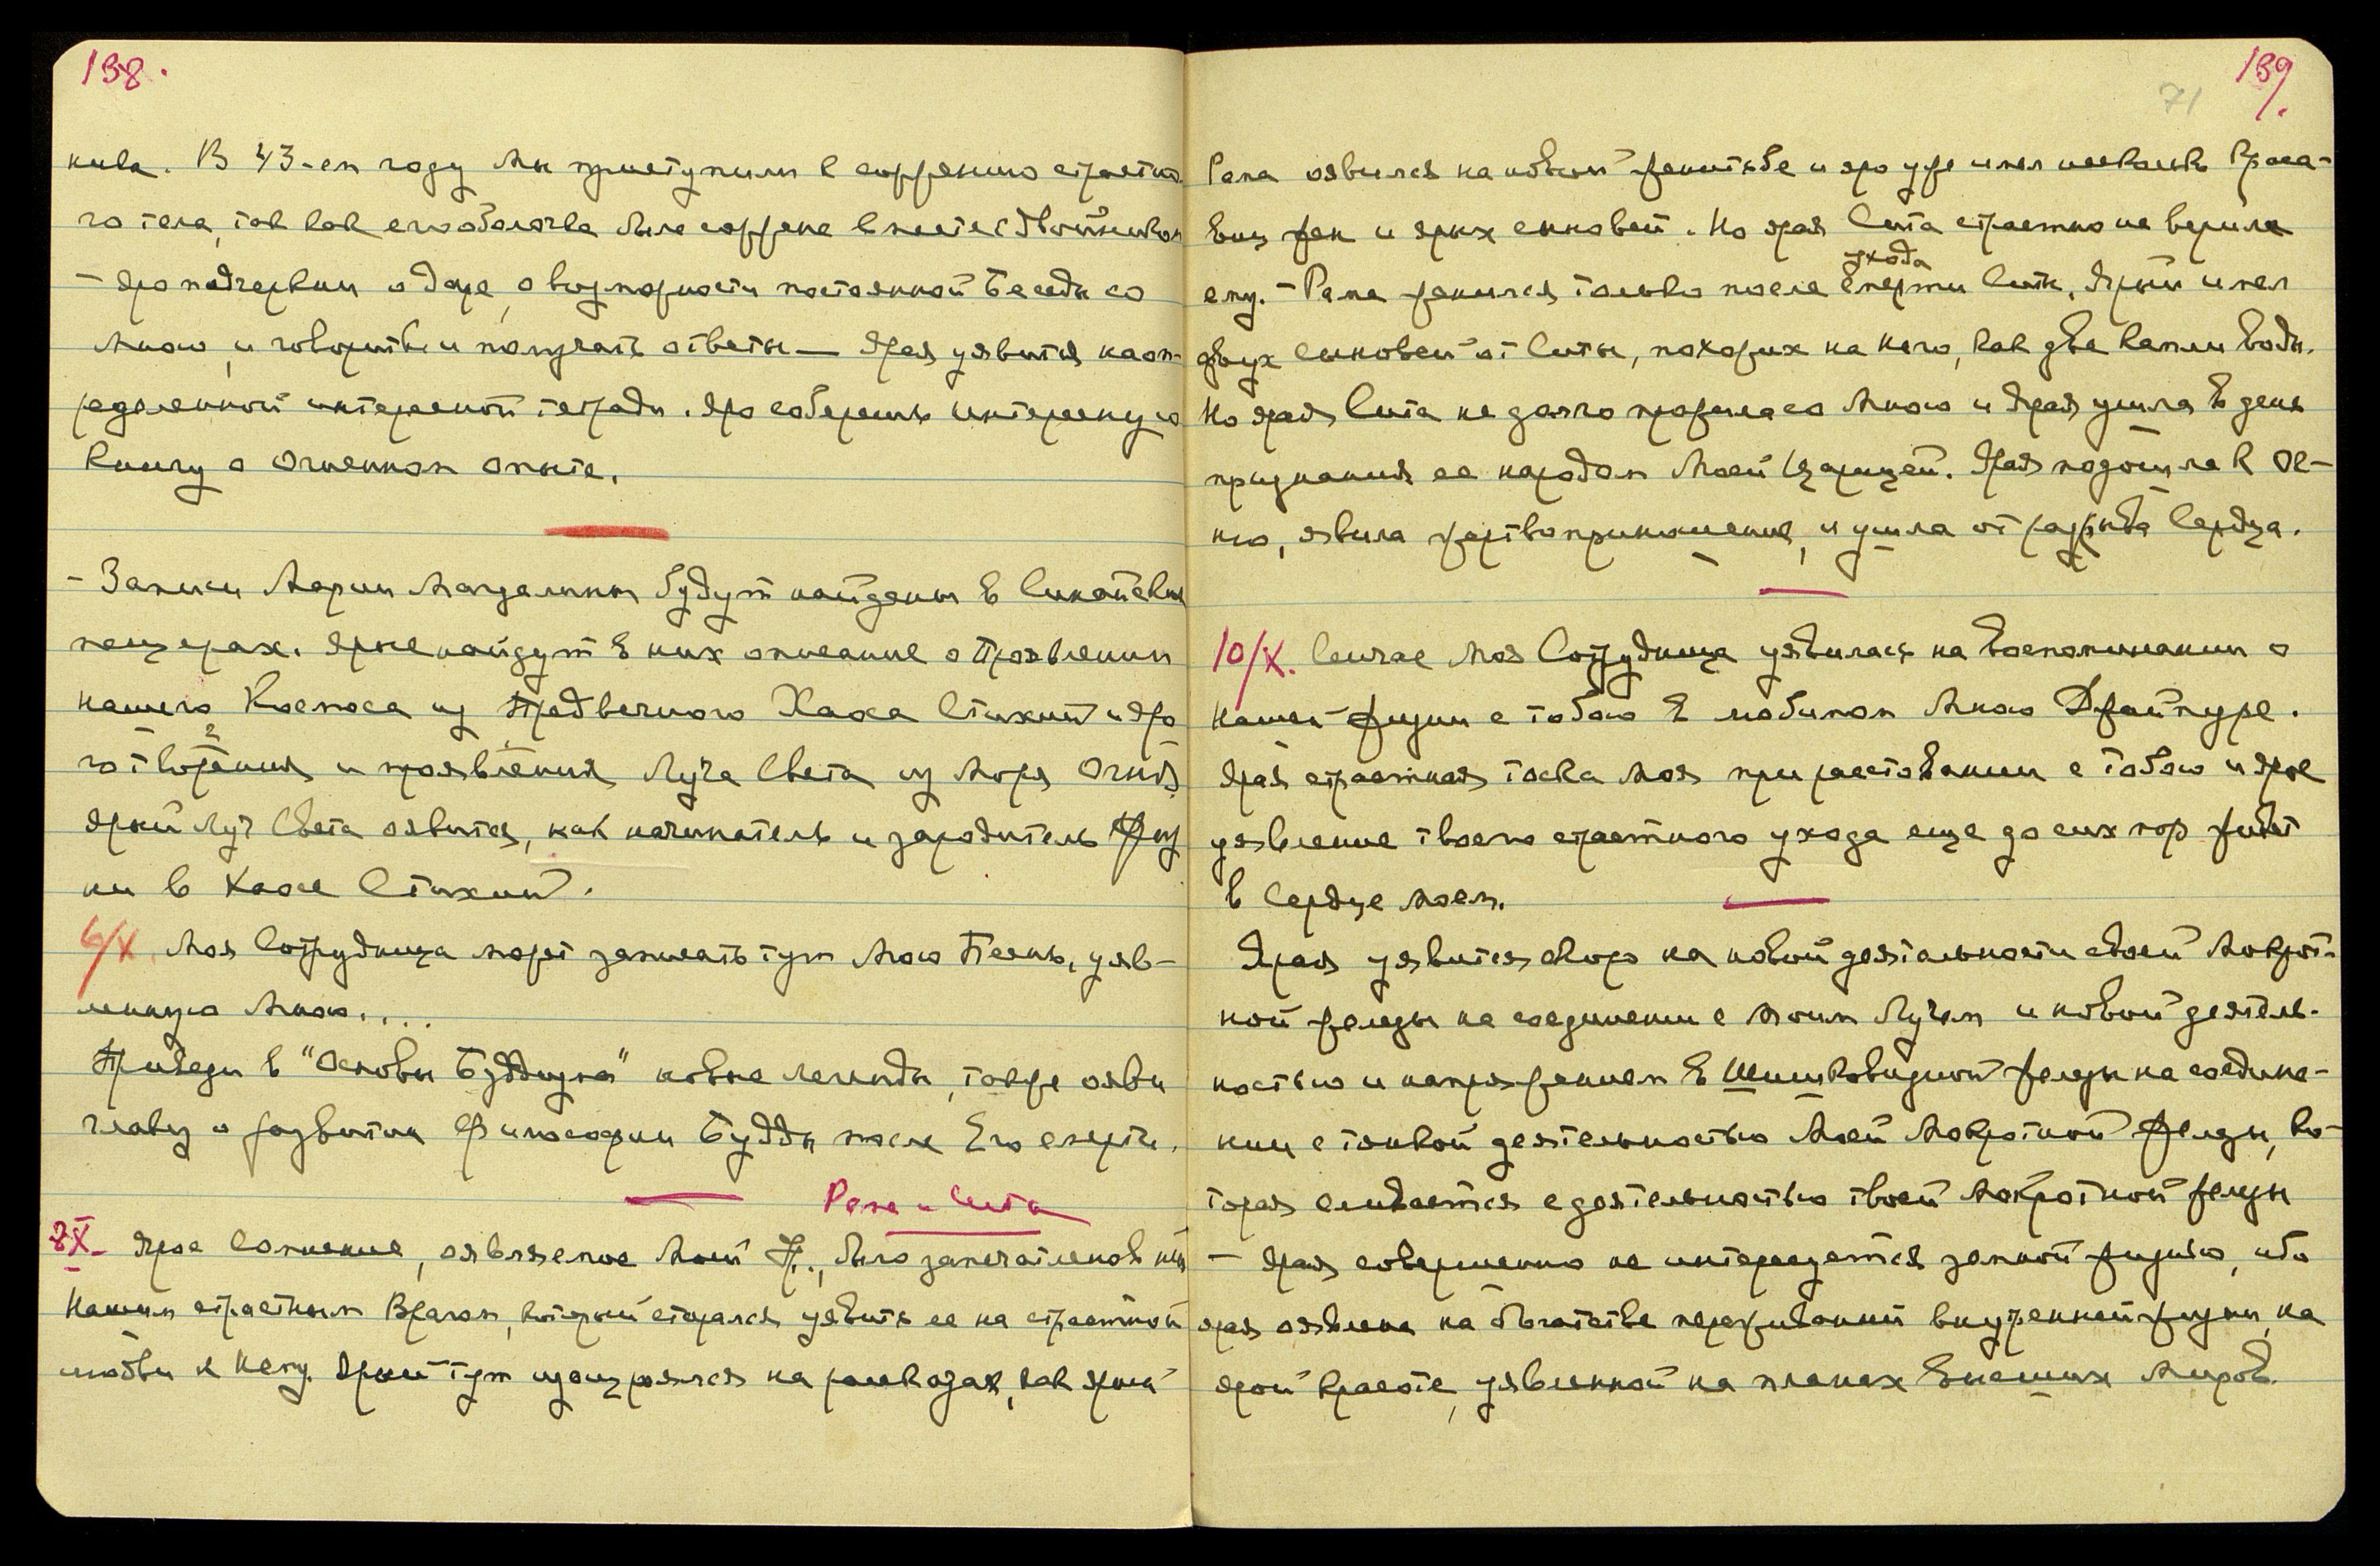 138.
кива. В 43-ем году Мы приступили к сожжению страстно-
го тела, так как его оболочка была сожжена вместе с двойником
— Яро подчеркни о даре, о возможности постоянной Беседы со
Мною, и говорить и получать ответы — Ярая уявится на оп-
ределенной интересной тетради. Яро соберешь интересную
книгу о Огненном опыте.
— Записи Марии Магдалины будут найдены в Синайских
пещерах. Ярые найдут в них описание о Проявлении
нашего Космоса из Предвечного Хаоса Стихий и яро
го творения и проявления Луча Света из Моря Огня
Ярый Луч Света оявится, как начинатель и зародитель Жиз
ни в Хаосе Стихий.
6/X. Моя Сотрудница может записать тут Мою Песнь, уяв-
ленную Мною....
Приведи в "Основы Буддизма" новые легенды, также яви
главу о развитии Философии Будды после Его смерти.
Рама и Сита
8X. Ярое Сомнение, оявляемое Моей Н., было запечатлено в ней
Нашим страстным Врагом, который старался уявить ее на страстной
любви к Нему. Ярый тут изощрялся на рассказах, как ярый
139.
71
Рама оявился на новой женитьбе и яро уже имел несколько Краса-
виц жен и ярых сыновей. Но ярая Сита страстно не верила
ухода
ему. — Рама женился только после смерти Ситы. Ярый имел
двух сыновей от Ситы, похожих на Него, как две капли воды.
Но ярая Сита не долго прожила со Мною и Ярая ушла в день
признания ее народом Моей Царицей. Ярая подошла к Ог-
ню, явила жертвоприношение, и ушла от разрыва Сердца.
10/X. Сейчас Моя Сотрудница уявилась на воспоминании о
нашей жизни с тобою в любимом Мною Джайпуре.
Ярая страстная тоска Моя при расставании с Тобою и ярое
уявление твоего страстного ухода еще до сих пор живет
в Сердце Моем.
Ярая уявится скоро на новой деятельности своей Мокрот-
ной железы на соединении с Моим Лучом и новой деятель-
ностью и напряжением в Шишковидной железы на соедине-
нии с тонкой деятельностью Моей Мокротной Железы, ко-
торая сливается с деятельностью твоей Мокротной железы
— Ярая совершенно не интересуется земной жизнью, ибо
ярая оявлена на богатстве переживаний внутренней жизни, на
ярой красоте, уявленной на планах Высших Миров.